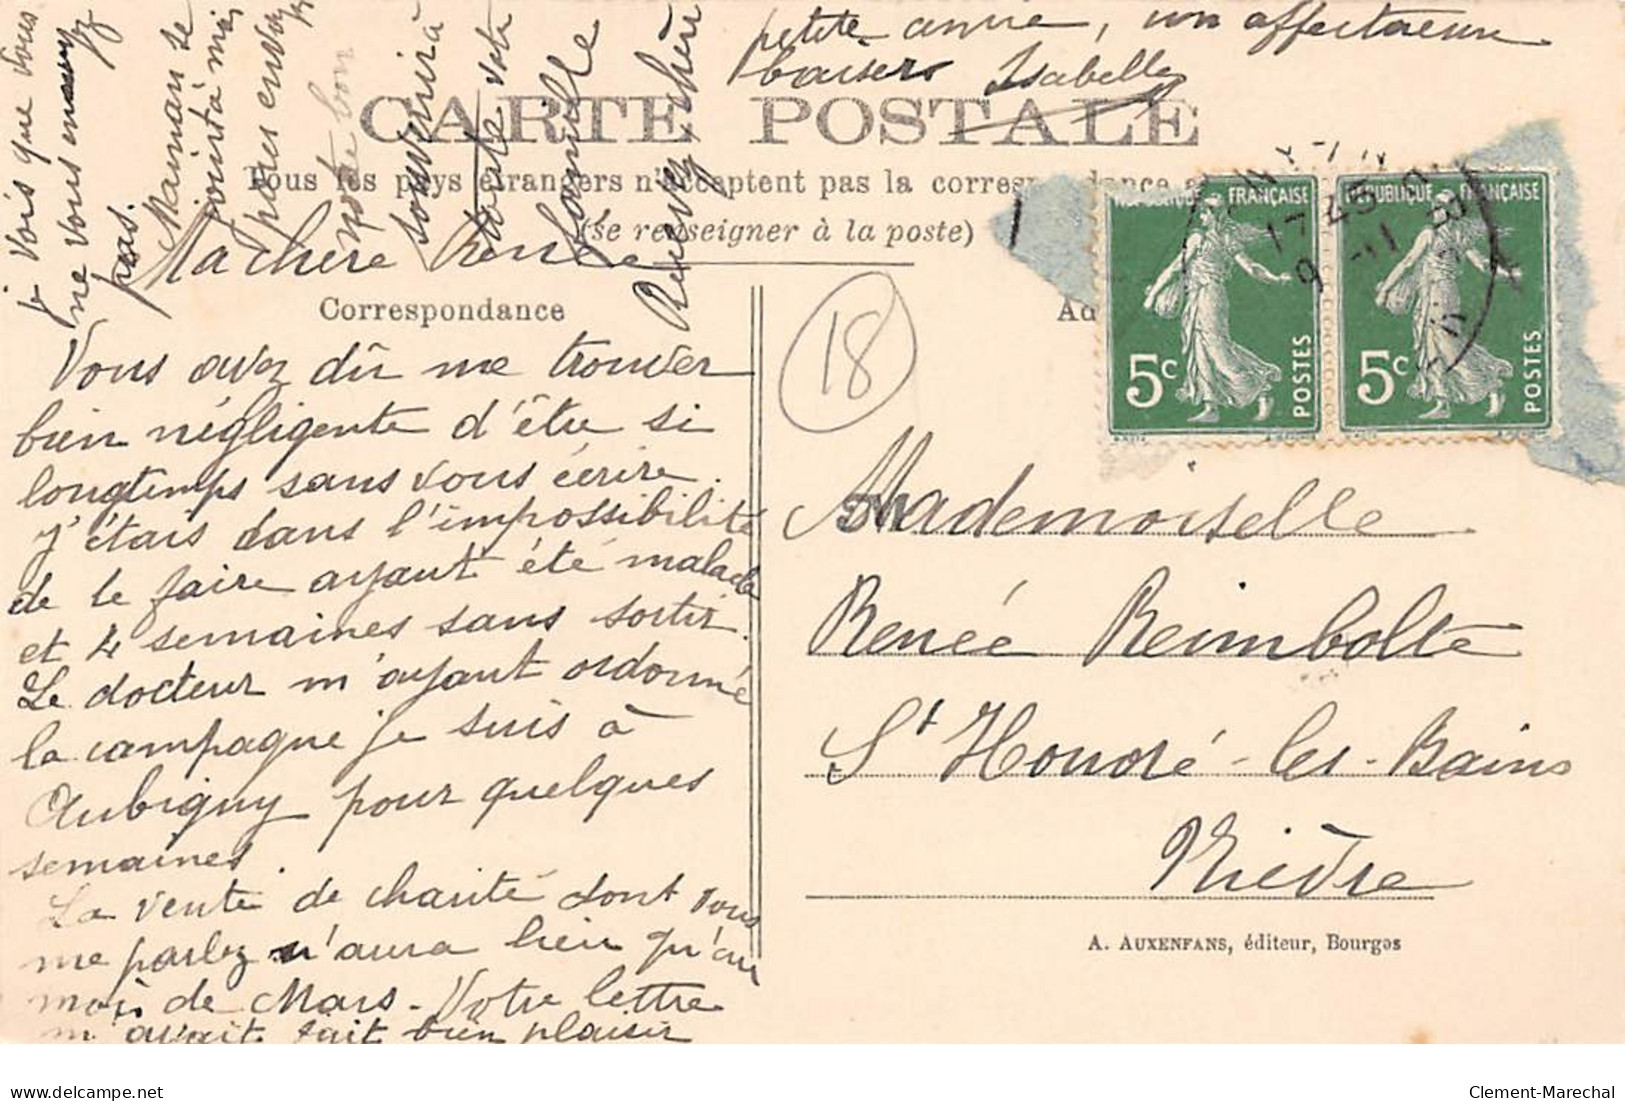 CARTE POSTALE
Tous les pays étrangers n'acceptent pas la correspondance a
(se renseigner à la poste)
Correspondance
Ad
Ma chère Renée
Vous avez dû me trouver
bien négligente d'être si
longtemps sans vous écrire.
J'étais dans l'impossibilité
de le faire ayant été malade
et 4 semaines sans sortir.
Le docteur m'ayant ordonné
la campagne je suis à
Aubigny pour quelques
semaines.
La vente de charité dont vous
me parlez n'aura lieu qu'au
mois de Mars. Votre lettre
m'avait fait bien plaisir
je vois que vous
ne vous
pas.
Maman se
joint à moi
pour envoyer
notre bon
souvenir à
toute votre
famille
Recevez, chère
petite amie, un affectueux
baisers Isabelle
18
RÉPUBLIQUE FRANÇAISE
5c
POSTES
RÉPUBLIQUE FRANÇAISE
5c
POSTES
17 25
9 -11
Mademoiselle
Renée Reimbolte
St Honoré-les-Bains
Nièvre
A. AUXENFANS, éditeur, Bourges
delcampe.net
Clement-Marechal